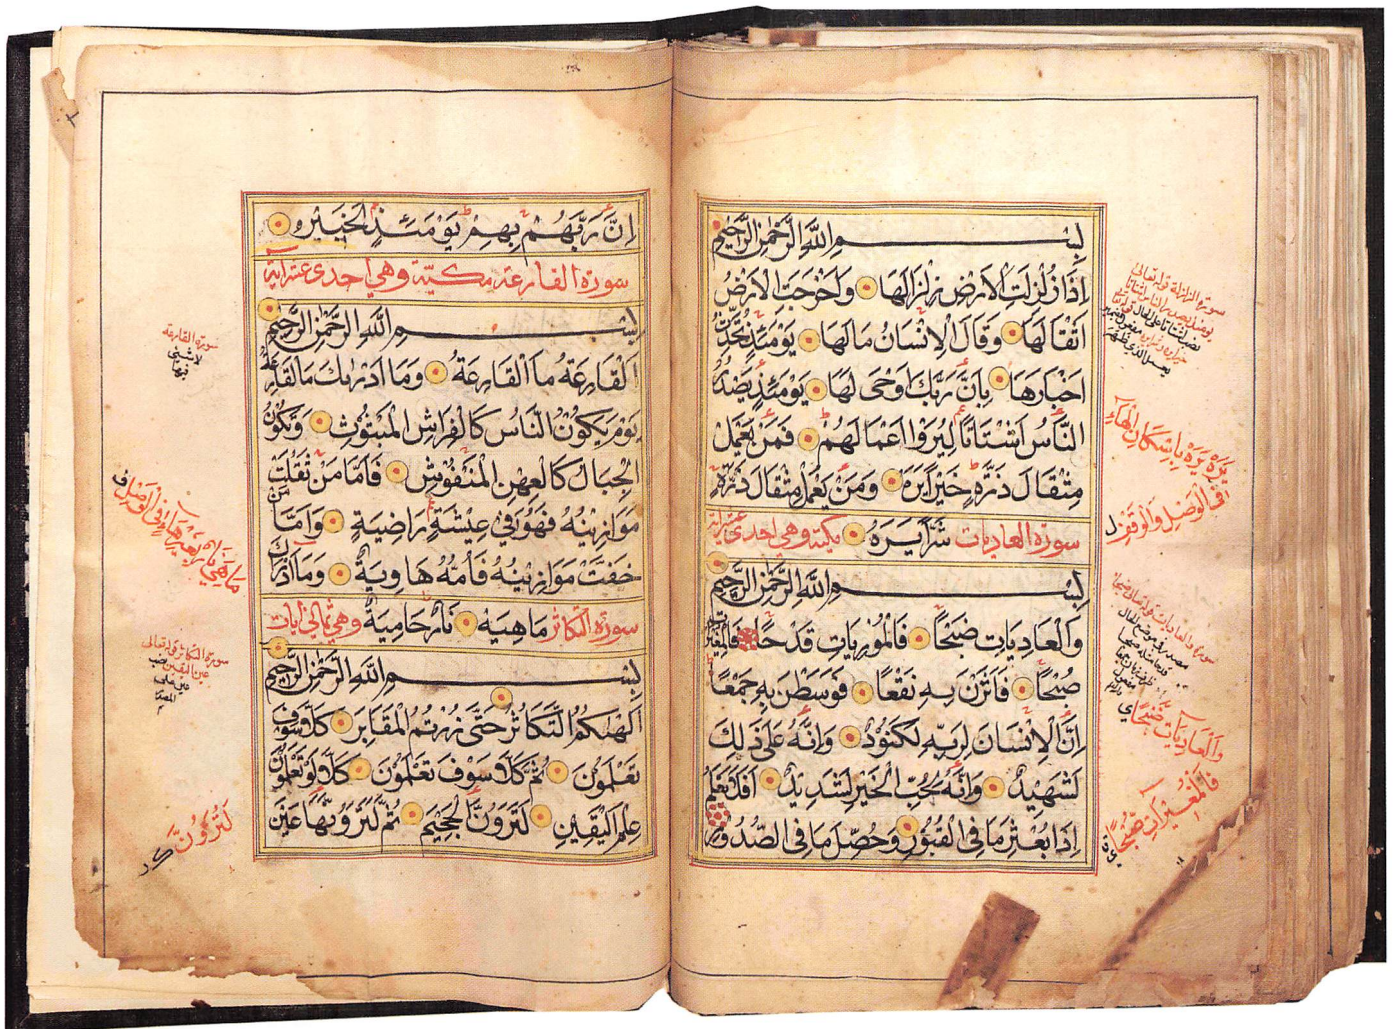 بِسْمِ اللَّهِ الرَّحْمَٰنِ الرَّحِيمِ
اِذَا زُلْزِلَتِ الْاَرْضُ زِلْزَالَهَا وَاَخْرَجَتِ الْاَرْضُ
اَثْقَالَهَا وَقَالَ الْاِنْسَانُ مَا لَهَا يَوْمَئِذٍ تُحَدِّثُ
اَخْبَارَهَا بِاَنَّ رَبَّكَ اَوْحَى لَهَا يَوْمَئِذٍ يَصْدُرُ
النَّاسُ اَشْتَاتًا لِيُرَوْا اَعْمَالَهُمْ فَمَنْ يَعْمَلْ
مِثْقَالَ ذَرَّةٍ خَيْرًا يَرَهُ وَمَنْ يَعْمَلْ مِثْقَالَ ذَرَّةٍ
شَرًّا يَرَهُ
سورة العاديات مكية وهي احدى عشراية
بِسْمِ اللَّهِ الرَّحْمَٰنِ الرَّحِيمِ
وَالْعَادِيَاتِ ضَبْحًا فَالْمُوْرِيَاتِ قَدْحًا فَالْمُغِيْرَاتِ
صُبْحًا فَاَثَرْنَ بِهِ نَقْعًا فَوَسَطْنَ بِهِ جَمْعًا
اِنَّ الْاِنْسَانَ لِرَبِّهِ لَكَنُوْدٌ وَاِنَّهُ عَلَى ذَلِكَ
لَشَهِيْدٌ وَاِنَّهُ لِحُبِّ الْخَيْرِ لَشَدِيْدٌ اَفَلَا يَعْلَمُ
اِذَا بُعْثِرَ مَا فِي الْقُبُوْرِ وَحُصِّلَ مَا فِي الصُّدُوْرِ
سورة الزلزلة قوله تعالى
يَرَهُ يَرَهُ بِاِسْكَانِ الْهَاءِ
فِي الْوَصْلِ وَالْوَقْفِ
سورة والعاديات قوله تعالى ضبحا
وَالْعَادِيَاتِ ضَبْحًا
فَالْمُغِيْرَاتِ صُبْحًا
اِنَّ رَبَّهُمْ بِهِمْ يَوْمَئِذٍ لَخَبِيْرٌ
سورة القارعة مكية وهي احدى عشراية
بِسْمِ اللَّهِ الرَّحْمَٰنِ الرَّحِيمِ
اَلْقَارِعَةُ مَا الْقَارِعَةُ وَمَا اَدْرٰىكَ مَا الْقَارِعَةُ
يَوْمَ يَكُوْنُ النَّاسُ كَالْفَرَاشِ الْمَبْثُوْثِ وَتَكُوْنُ
الْجِبَالُ كَالْعِهْنِ الْمَنْفُوْشِ فَاَمَّا مَنْ ثَقُلَتْ
مَوَازِيْنُهُ فَهُوَ فِي عِيْشَةٍ رَاضِيَةٍ وَاَمَّا مَنْ
خَفَّتْ مَوَازِيْنُهُ فَاُمُّهُ هَاوِيَةٌ وَمَا اَدْرٰىكَ
مَا هِيَهْ نَارٌ حَامِيَةٌ
سورة التكاثر وهي ثماني ايات
بِسْمِ اللَّهِ الرَّحْمَٰنِ الرَّحِيمِ
اَلْهٰىكُمُ التَّكَاثُرُ حَتَّى زُرْتُمُ الْمَقَابِرَ كَلَّا سَوْفَ
تَعْلَمُوْنَ ثُمَّ كَلَّا سَوْفَ تَعْلَمُوْنَ كَلَّا لَوْ تَعْلَمُوْنَ
عِلْمَ الْيَقِيْنِ لَتَرَوُنَّ الْجَحِيْمَ ثُمَّ لَتَرَوُنَّهَا عَيْنَ
سورة القارعة
لا شئ
فيها
سورة التكاثر قوله تعالى
عين اليقين
لَتَرَوُنَّ